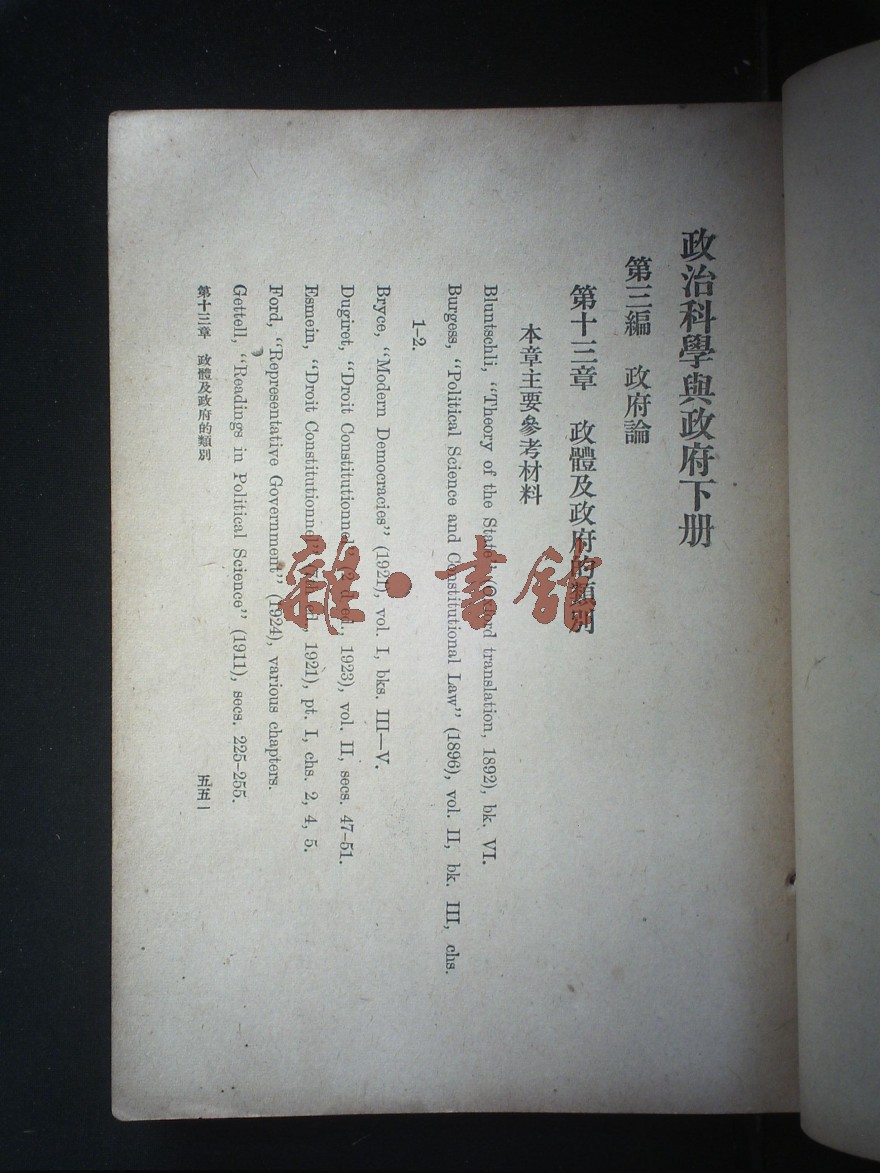 政治科學與政府下册
第三編 政府論
第十三章 政體及政府的類別
本章主要參考材料
Bluntschli, “Theory of the State” (Oxford translation, 1892), bk. VI.
Burgess, “Political Science and Constitutional Law” (1896), vol. II, bk. III, chs.
1–2.
Bryce, “Modern Democracies” (1921), vol. I, bks. III—V.
Dugiret, “Droit Constitutionnel” (2d ed., 1923), vol. II, secs. 47–51.
Esmein, “Droit Constitutionnel” ed., 1921), pt. I, chs. 2, 4, 5.
Ford, “Representative Government” (1924), various chapters.
Gettell, “Readings in Political Science” (1911), secs. 225–255.
第十三章 政體及政府的類別
五五一
雜·書館